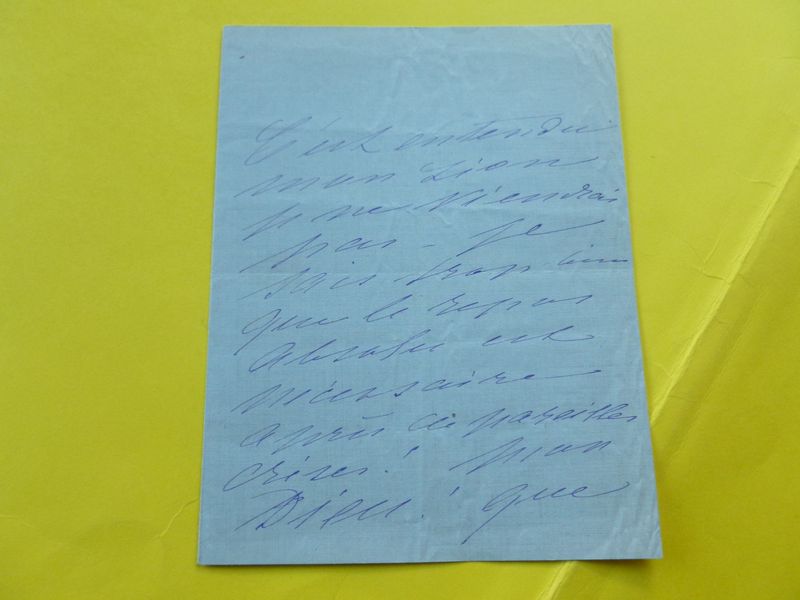 C'est entendu
mon Lion
je ne viendrai
pas - je
sais trop bien
que le repos
absolu est
nécessaire
après de pareilles
crises! Mon
Dieu! que